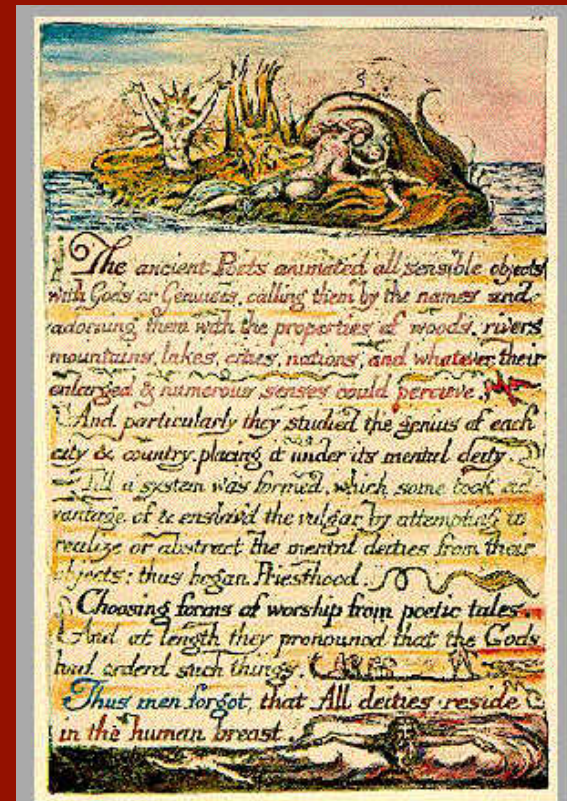 The ancient Poets animated all sensible objects
with Gods or Geniuses, calling them by the names and
adorning them with the properties of woods, rivers
mountains, lakes, cities, nations, and whatever their
enlarged & numerous senses could percieve.
And particularly they studied the genius of each
city & country. placing it under its mental deity.
Till a system was formed, which some took ad-
vantage of & enslav'd the vulgar by attempting to
realize or abstract the mental deities from their
objects: thus began Priesthood.
Choosing forms of worship from poetic tales.
And at length they pronounced that the Gods
had orderd such things.
Thus men forgot that All deities reside
in the human breast.